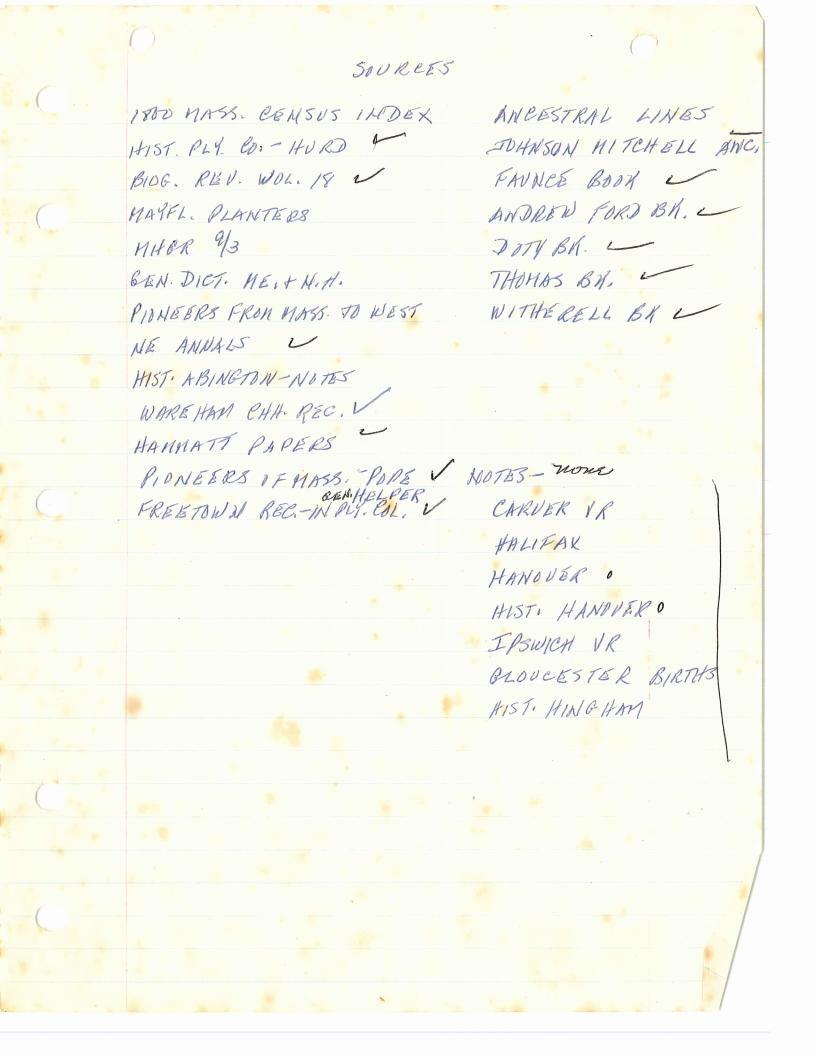 SOURCES
1800 MASS. CENSUS INDEX
HIST. PLY. CO. - HURD ✓
BIOG. REV. VOL. 18 ✓
MAYFL. PLANTERS
MHGR 9/3
GEN. DICT. ME. + N.H.
PIONEERS FROM MASS. TO WEST
NE ANNALS ✓
HIST. ABINGTON - NOTES
WAREHAM CHH. REC. ✓
HAMMATT PAPERS ✓
PIONEERS OF MASS. - POPE ✓
GEN. HELPER
FREETOWN REC. - IN PLY. COL. ✓
ANCESTRAL LINES
JOHNSON MITCHELL ANC.
FAUNCE BOOK ✓
ANDREW FORD BK. ✓
DOTY BK. ✓
THOMAS BK. ✓
WITHERELL BK ✓
NOTES - none
CARVER VR
HALIFAX
HANOVER o
HIST. HANOVER o
IPSWICH VR
GLOUCESTER BIRTHS
HIST. HINGHAM